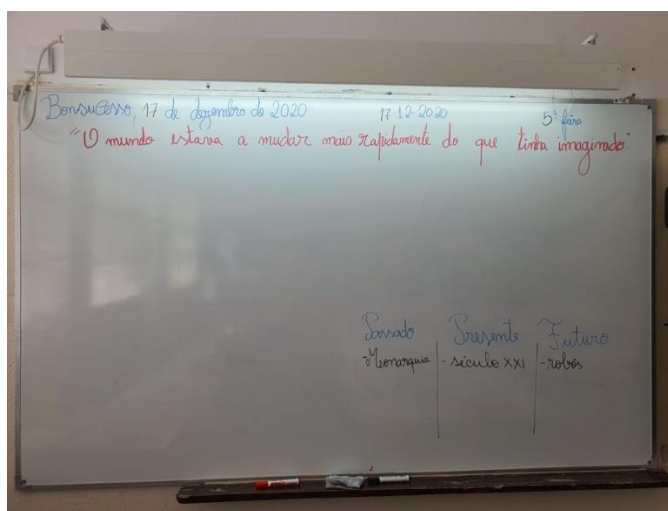 Bonsucesso, 17 de dezembro de 2020 17-12-2020 5ª feira
"O mundo estava a mudar mais rapidamente do que tinha imaginado."
Passado Presente Futuro
-Monarquia -século XXI -robôs